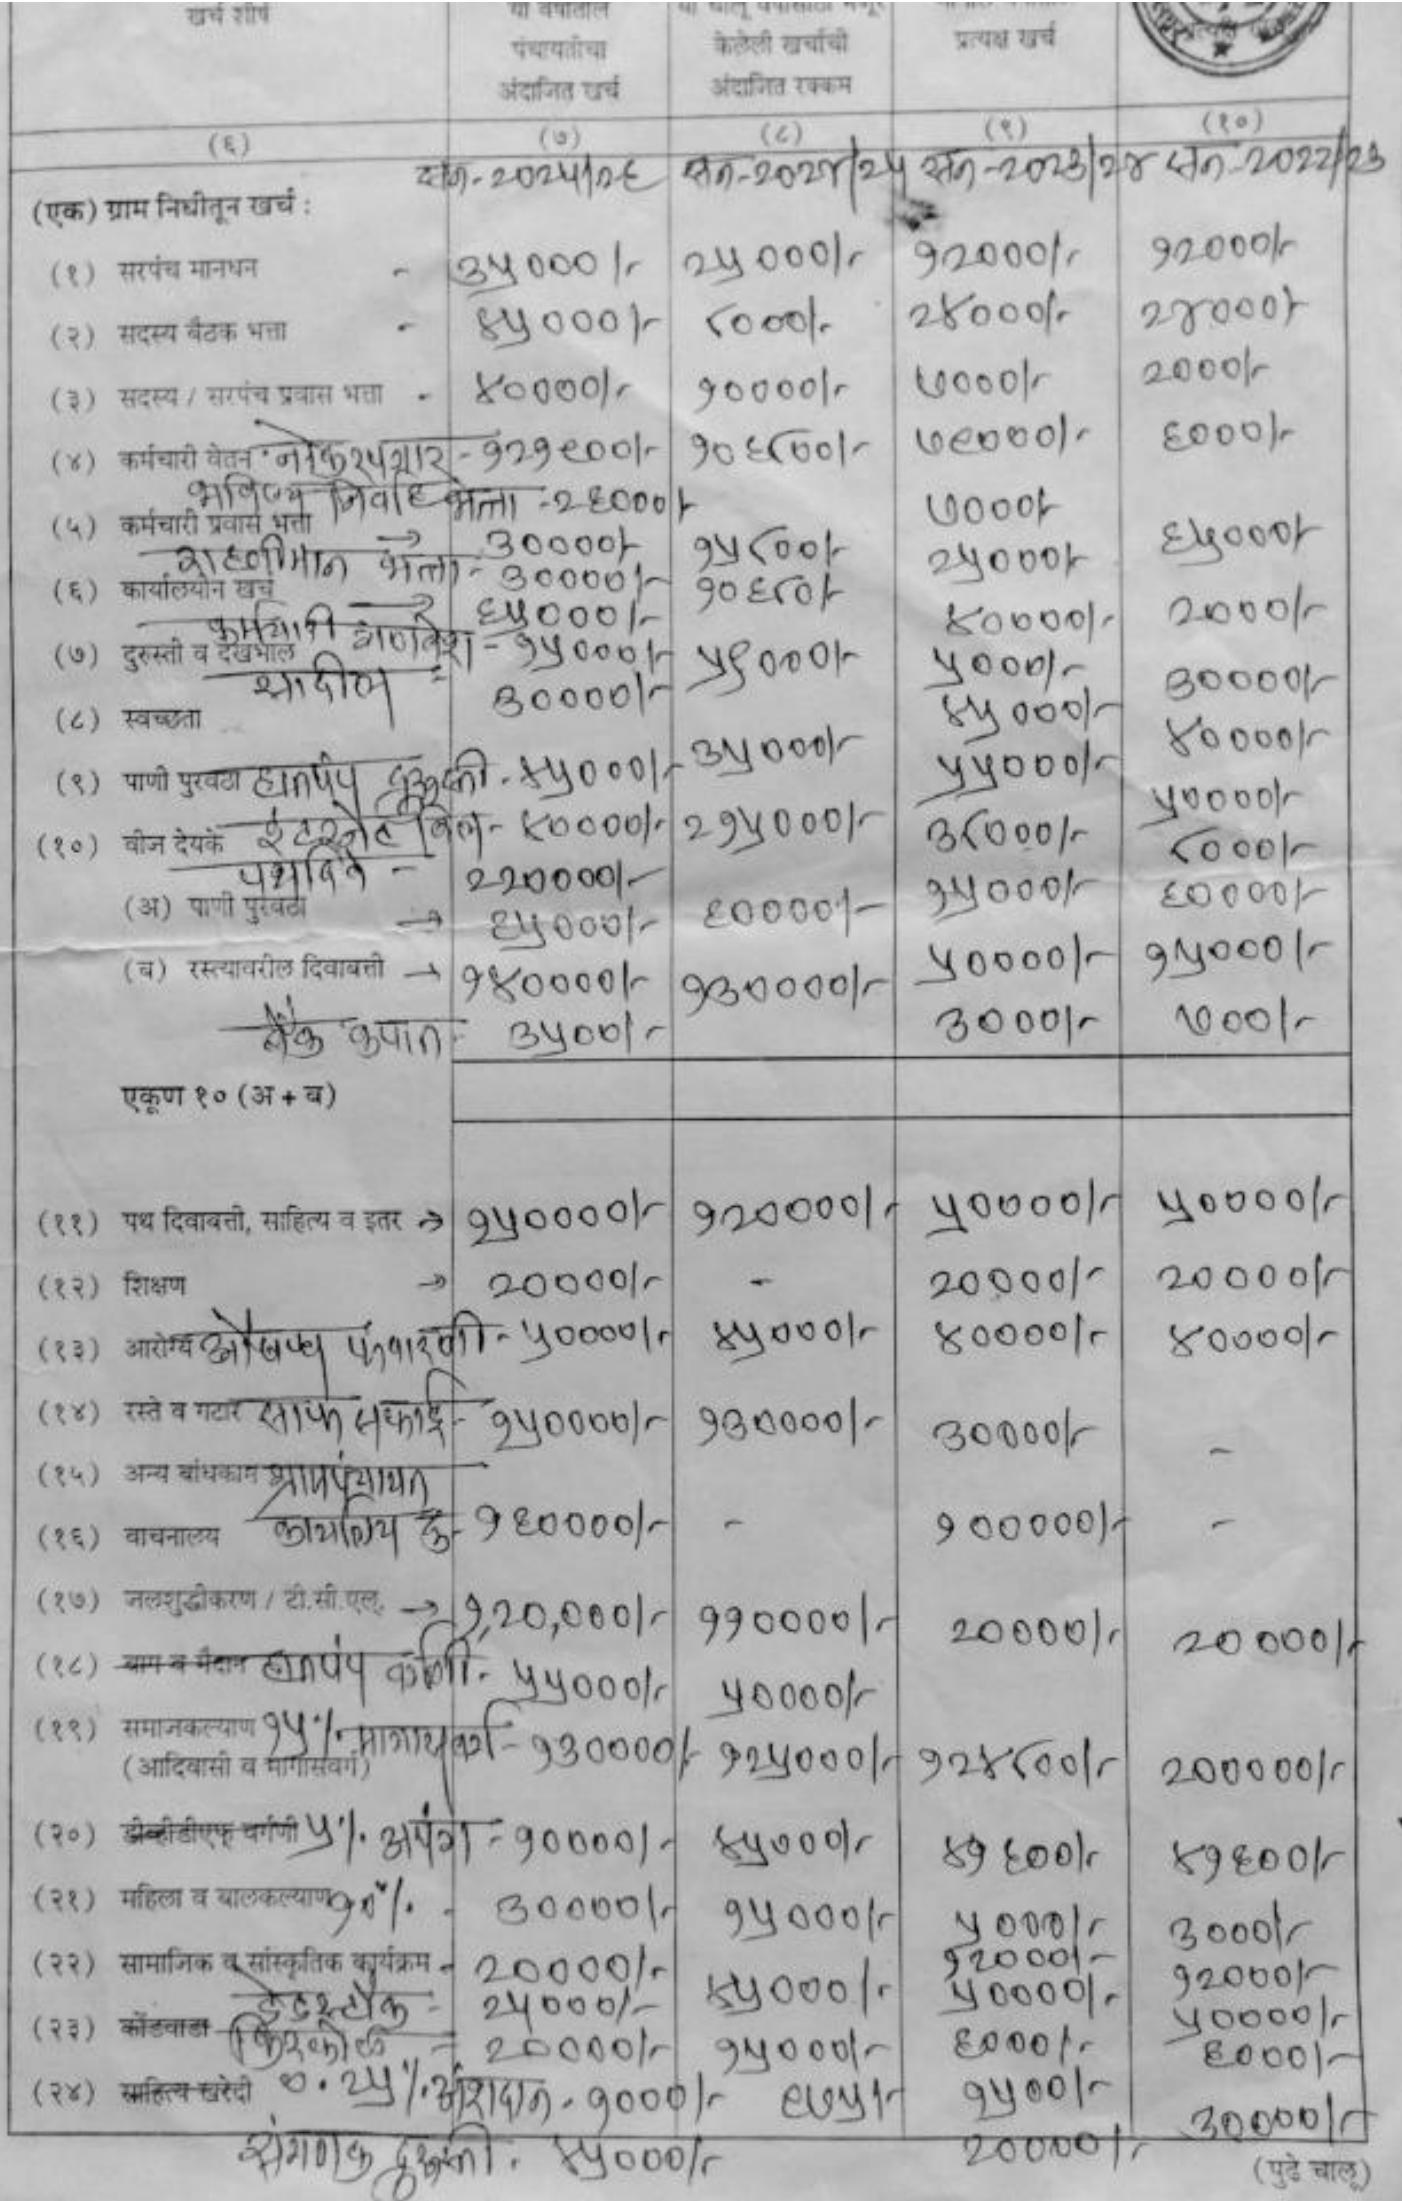 खर्च शीर्ष
या वर्षातील पंचायतीचा अंदाजित खर्च
केलेली खर्चाची अंदाजित रक्कम
प्रत्यक्ष खर्च
(६) (७) (८) (९) (१०)
सन-२०२५/२६ सन-२०२४/२५ सन-२०२३/२४ सन-२०२२/२३
(एक) ग्राम निधीतून खर्च :
(१) सरपंच मानधन - ३५०००/- २५०००/- १२०००/- १२०००/-
(२) सदस्य बैठक भत्ता - ४५०००/- ८०००/- २४०००/- २४०००/-
(३) सदस्य / सरपंच प्रवास भत्ता - ४००००/- १००००/- ७०००/- २०००/-
(४) कर्मचारी वेतन नोकरपगार - १२१९००/- १०६८००/- ७९०००/- ६०००/-
भविष्य निर्वाह भत्ता - २६०००/- ७०००/-
(५) कर्मचारी प्रवास भत्ता → ३००००/- १५८००/- ६५०००/-
राहणीमान भत्ता - ३००००/- २५०००/-
(६) कार्यालयीन खर्च → ६५०००/- १०६८०/- ४००००/- २०००/-
कर्मचारी गणवेश - १५०००/-
(७) दुरुस्ती व देखभाल ५९०००/- ५०००/- ३००००/-
३००००/-
(८) स्वच्छता ३५०००/- ४५०००/- ४००००/-
(९) पाणी पुरवठा हातपंप दुरुस्ती - ४५०००/- ५५०००/- ५००००/-
(१०) वीज देयके इंटरनेट बिल - ४००००/- २१५०००/- ३८०००/- ८०००/-
पथदिवे - २२००००/-
(अ) पाणी पुरवठा → ६५०००/- ६००००/- १५०००/- ६००००/-
(ब) रस्त्यावरील दिवाबत्ती → १४००००/- १३००००/- ५००००/- १५०००/-
बँक कपात - ३५००/- ३०००/- ७००/-
एकूण १० (अ + ब)
(११) पथ दिवाबत्ती, साहित्य व इतर → १५००००/- १२००००/- ५००००/- ५००००/-
(१२) शिक्षण → २००००/- - २००००/- २००००/-
(१३) आरोग्य औषध फवारणी - ५००००/- ४५०००/- ४००००/- ४००००/-
(१४) रस्ते व गटार साफ सफाई - १५००००/- १३००००/- ३००००/- -
(१५) अन्य बांधकाम ग्रामपंचायत
(१६) वाचनालय कार्यालय दु - १६००००/- - १०००००/- -
(१७) जलशुद्धीकरण / टी.सी.एल. → १,२०,०००/- ११००००/- २००००/- २००००/-
(१८) बाग व मैदान हातपंप - ५५०००/- ५००००/-
(१९) समाजकल्याण १५% मागासवर्ग - १३००००/- १२५०००/- १२४८००/- २०००००/-
(आदिवासी व मागासवर्ग)
(२०) डीव्हीडीएफ वर्गणी ५% अपंग - १००००/- ४५०००/- ४१६००/- ४१६००/-
(२१) महिला व बालकल्याण १०% - ३००००/- १५०००/- ५०००/- ३०००/-
(२२) सामाजिक व सांस्कृतिक कार्यक्रम - २००००/- ४५०००/- १२०००/- १२०००/-
डेडस्टॉक - २५०००/- ५००००/- ५००००/-
(२३) कोंडवाडा किरकोळ - २००००/- १५०००/- ६०००/- ६०००/-
(२४) साहित्य खरेदी ०.२५% अंशदान - १०००/- ९७५/- १५००/- ३००००/-
संगणक दुरुस्ती - ४५०००/- २००००/-
(पुढे चालू)